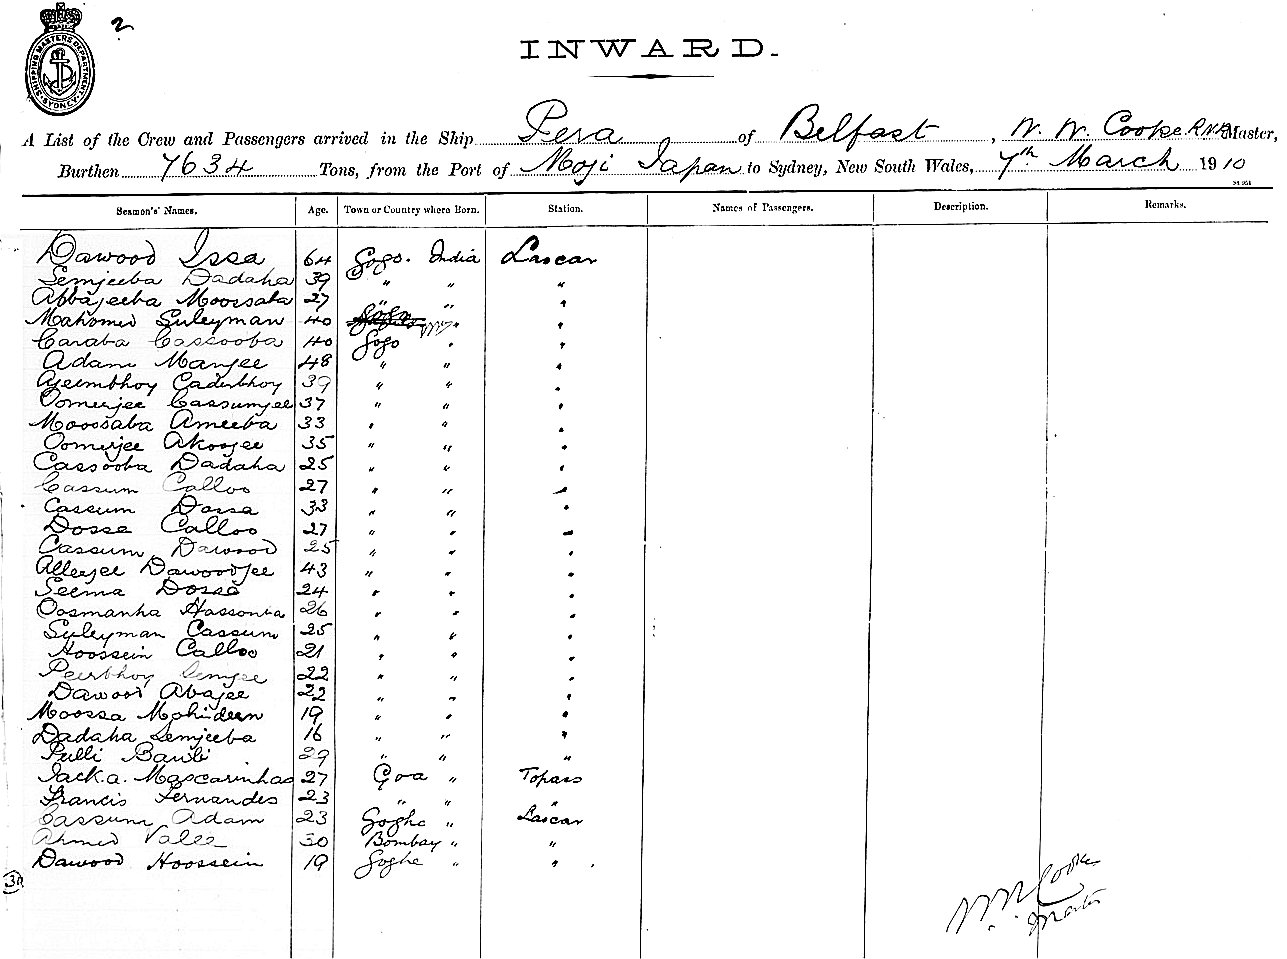 2
SHIPPING MASTERS DEPARTMENT
SYDNEY
INWARD.
A List of the Crew and Passengers arrived in the Ship Pera of Belfast, W. W. Cooke R.N.R. Master,
Burthen 7634 Tons, from the Port of Moji Japan to Sydney, New South Wales, 7th March 1910
Seamen's' Names. Age. Town or Country where Born. Station. Names of Passengers. Description. Remarks.
Dawood Issa 64 Gogo. India Lascar
Semjeeba Dadaha 39 " " "
Abbajeeba Moossaba 27 " " "
Mahomed Suleyman 40 Gogo " "
Caraba Cassooba 40 Gogo " "
Adam Manjee 48 " " "
Ajeembhoy Caderbhoy 39 " " "
Oomerjee Cassumjee 37 " " "
Moossaba Ameeba 33 " " "
Oomerjee Akoojee 35 " " "
Cassooba Dadaha 25 " " "
Cassum Calloo 27 " " "
Cassum Dossa 33 " " "
Dossa Calloo 27 " " "
Cassum Dawood 25 " " "
Alleejee Dawoodjee 43 " " "
Seema Dossa 24 " " "
Oosmanha Hassonba 26 " " "
Suleyman Cassum 25 " " "
Hoossein Calloo 21 " " "
Peerbhoy Semjee 22 " " "
Dawood Abajee 22 " " "
Moossa Mohideen 19 " " "
Dadaha Semjeeba 16 " " "
Pulli Baubi 29 " " "
Jack. a. Mascarinhas 27 Goa " Topass
Francis Fernandes 23 " " "
Cassum Adam 23 Goghe " Lascar
Ahmed Vallee 30 Bombay " "
Dawood Hoossein 19 Goghe " "
30
W. W. Cooke
Master